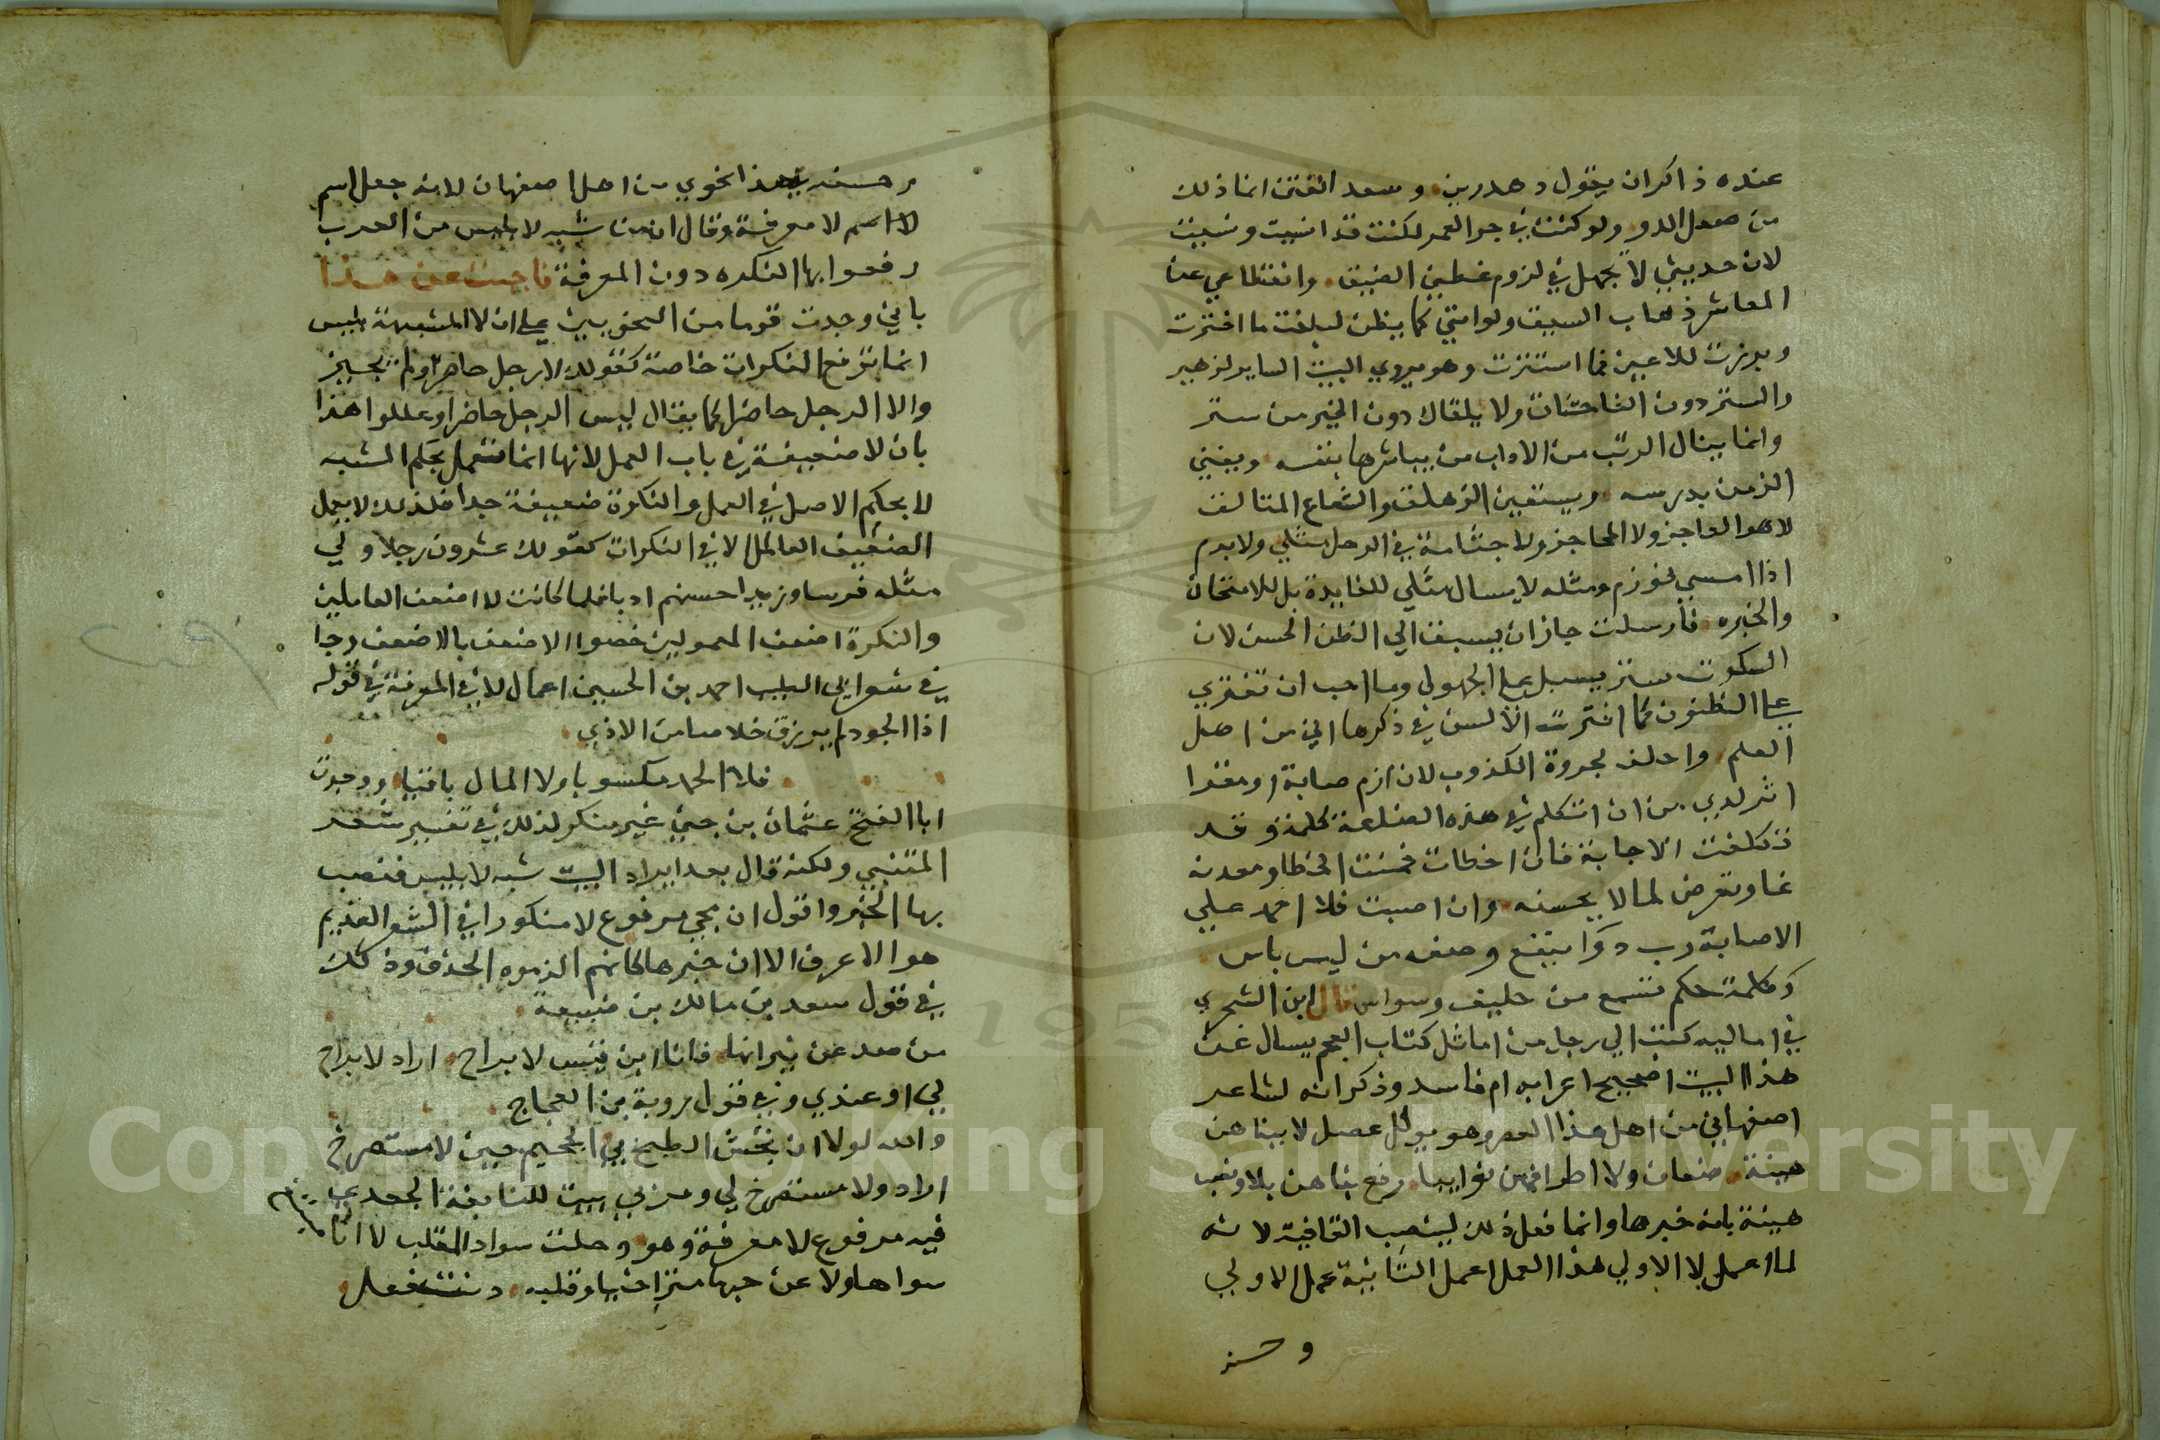 عنده ذاكران يقول دهدرين وسعد القين انما ذلك
من صعل الدو ولو كنت في جو العمر لكنت قد انسيت ونسيت
لان حديثي لا يجهل في لزوم عطن الضيق وانقطاعي عن
المعاشر ذهاب السيف ولو انني كما يظن لبلغت ما اخترت
وبرزت للاعين فما استترت وهو يروي البيت الساير لزهير
والستر دون الفاحشات ولا يلقاك دون الخير من ستر
وانما ينال الرتب من الاداب من يباشرها بنفسه ويفني
الزمن بدرسه ويستعين الزهلق والشعاع المتالق
لا هو العاجز ولا المحاجز ولا جثامة في الرحل مثلي ولا برم
اذا امسى نوزم ومثله لا يسال مثلي للفايدة بل للامتحان
والخبره فان سكت جاز ان يسبق الي الظن الحسن لان
السكوت ستر يسبل على الجهول وما احب ان تفتري
على الظنون كما افترت الالسن في ذكرها اني من اهل
العلم واحلف بمروة الكذوب لان ارم صابة او مقرا
اثر لدي من ان اتكلم في هذه الصناعة كلمة وقد
تكلفت الاجابة فان اخطات فمنبت الخطا ومعدنه
غاو تعرض لما لا يحسنه وان اصبت فلا احمد علي
الاصابة رب دوا ينفع وصفه من ليس باس
وكلمة حكم تسمع من حليف وسواس قال ابن الشجري
في اماليه كتب الي رجل من اماثل كتاب العجم يسال عن
هذا البيت اصحيح اعرابه ام فاسد وذكر انه لشاعر
اصفهاني من اهل هذا العصر وهو يوكل عصل لا بيناهن
هينة ضعاف ولا اطرافهن نوابيا رفع بناهن بلا ونصب
هينة بانه خبرها وانما فعل ذلك لينصب القافية لانه
لما اعمل لا الاولي هذا العمل اعمل الثانية عمل الاولي
وحسنه
وحسنه بعد نحوي من اهل اصفهان لانه جعل اسم
لا اسم لا معرفة وقال ان من شبه لا بليس من العرب
رفعوا بها النكره دون المعرفة فاجبت عن هذا
باني وجدت قوما من النحويين على ان لا المشبهة بليس
انما ترفع النكرات خاصة كقولك لا رجل حاضرا ولم يجيز
والا الرجل حاضرا كما يقال ليس الرجل حاضرا وعللوا هذا
بان لا ضعيفة في باب العمل لانها انما تعمل بحكم الشبه
لا بحكم الاصل في العمل والنكرة ضعيفة جدا فلذلك لا يعمل
الضعيف العامل الا في النكرات كقولك عشرون رجلا ولي
مثله فرسا وزيد احسنهم ادبا فلما كانت لا اضعف العاملين
والنكرة اضعف المعمولين خصوا الاضعف بالاضعف وجا
في شعر ابي الطيب احمد بن الحسين اعمال لا في المعرفة في قوله
اذا الجود لم يرزق خلاصا من الاذي
فلا الحمد مكسوبا ولا المال باقيا ووجدت
ابا الفتح عثمان بن جني غير منكر لذلك في تفسير شعر
المتنبي ولكنه قال بعد ايراد البيت شبه لا بليس فنصب
بها الخبر واقول ان مجي مرفوع لا منكورا في الشعر القديم
هو الاعرف الا ان خبرها كانهم الزموه الحذف وذلك
في قول سعد بن مالك بن ضبيعة
من صد عن نيرانها فانا ابن قيس لا براح اراد لا براح
لي او عندي وفي قول روبة بن العجاج
والله لولا ان تحش الطبخ بي الجحيم حين لا مستصرخ
اراد ولا مستصرخ لي ومر بي بيت للنابغة الجعدي
فيه مرفوع لا معرفة وهو وحلت سواد القلب لا انا
سواها ولا عن حبها متراخيا وقلبه دنت فعل